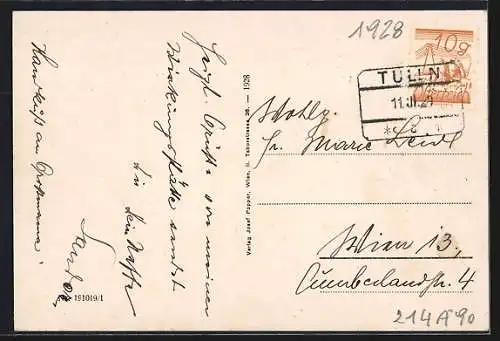 1928
10g
TULLN
11.III.29
*c c 1
Wohlg.
Fr. Marie
Wien 13.,
Cumberlandstr. 4
214 A 90
Herzl. Grüße von meiner
Wirkungsstätte sendet
Dir Dein Neffe
Handkuß an Großmama!
Verlag Josef Popper, Wien, II. Taborstrasse 38. — 1928
191019/1